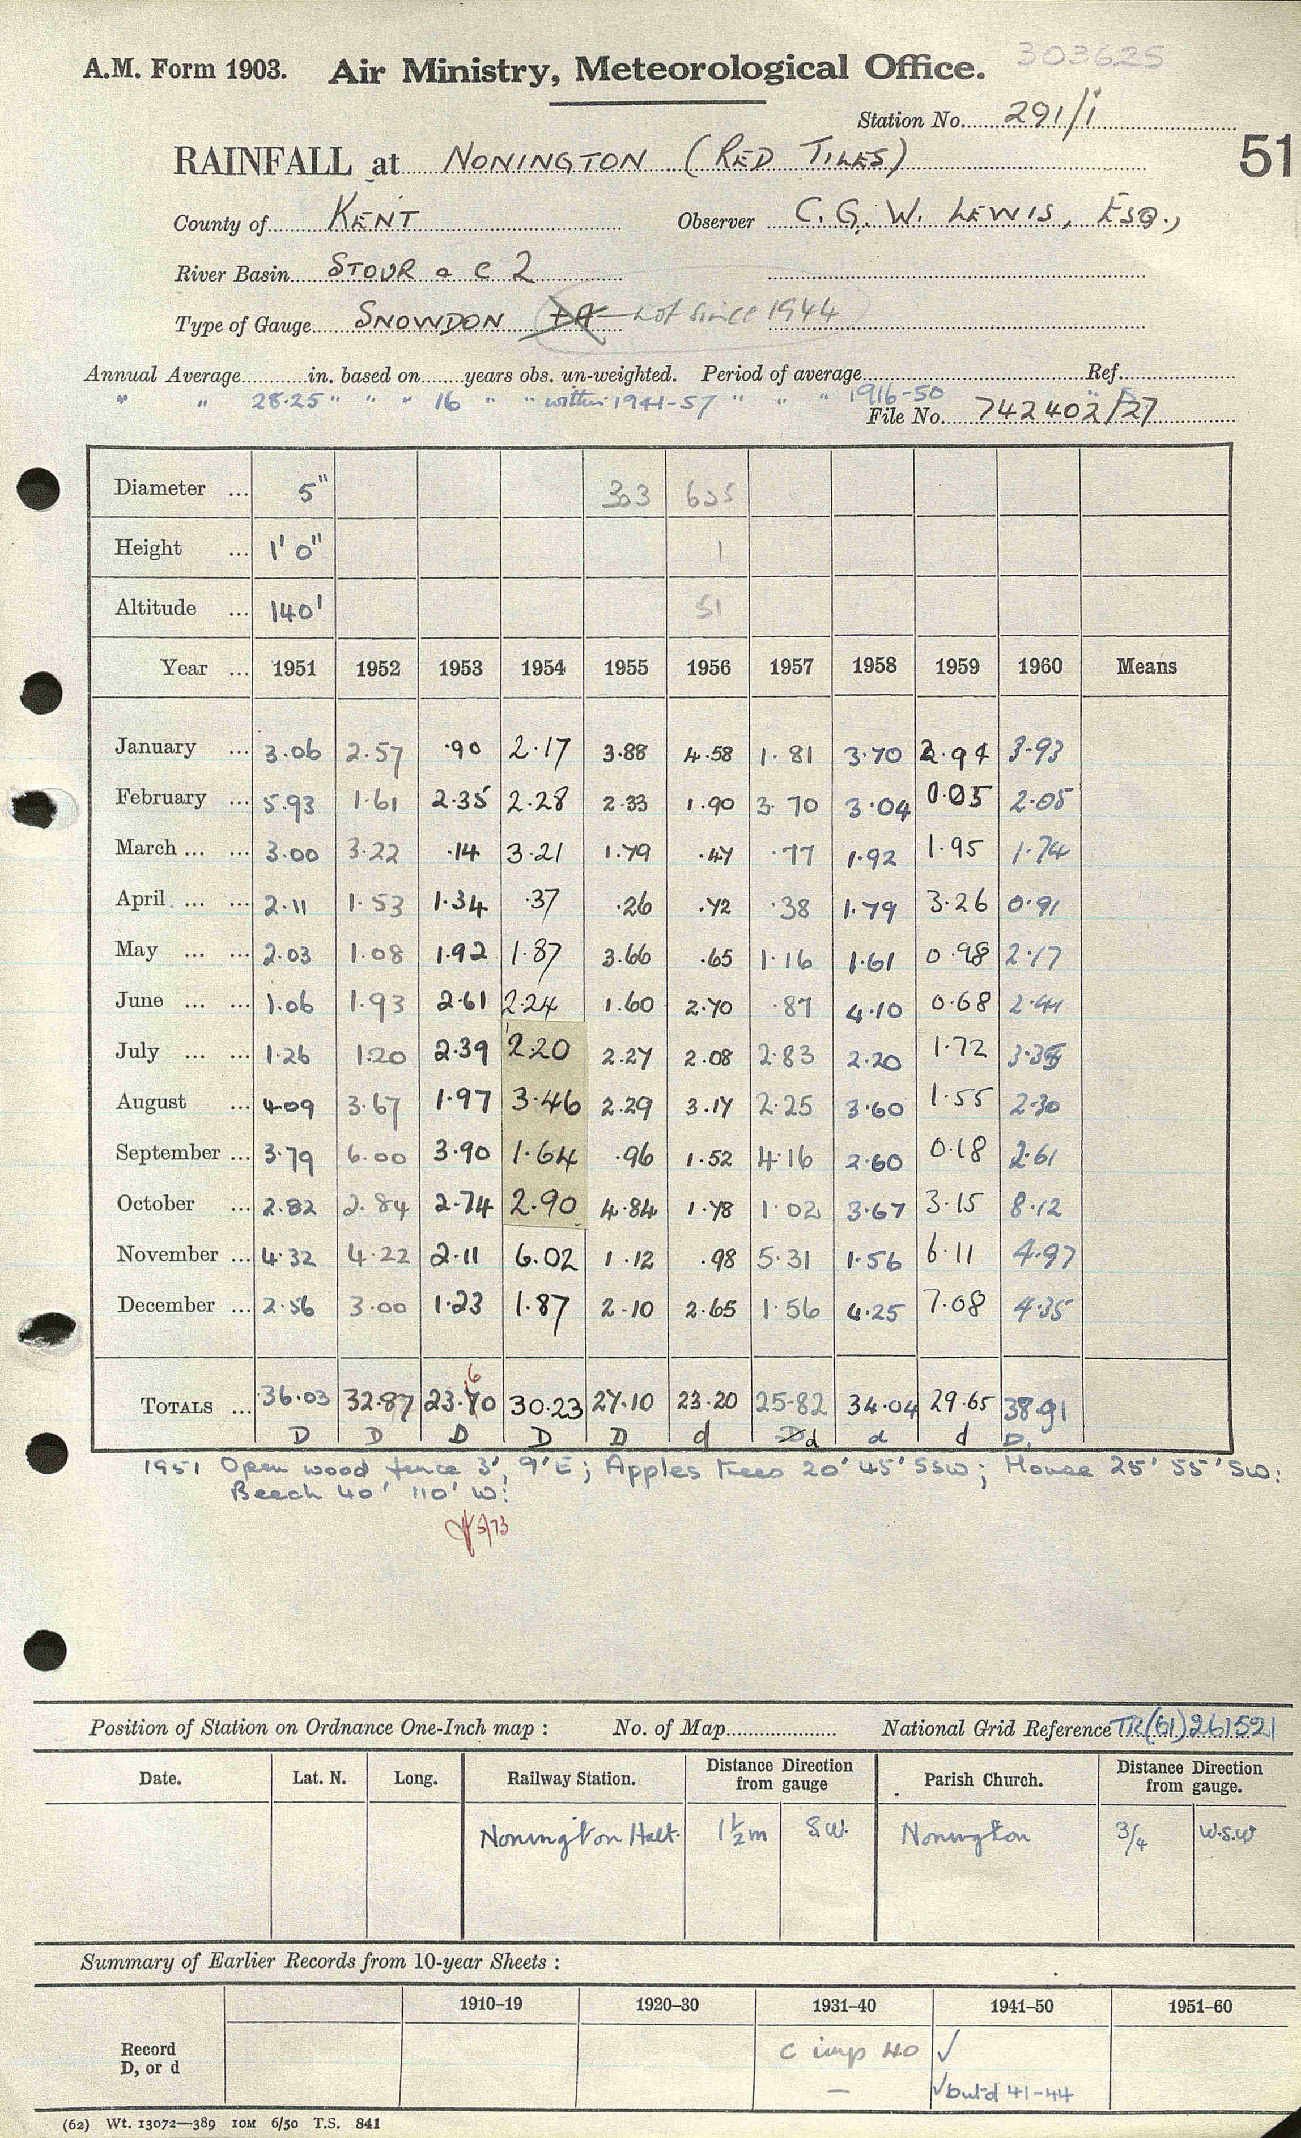 303625
A.M. Form 1903. Air Ministry, Meteorological Office.
Station No. 291/1
51
RAINFALL at NONINGTON (RED TILES)
County of KENT Observer C. G. W. LEWIS, ESQ.,
River Basin STOUR a c 2
Type of Gauge SNOWDON not since 1944
Annual Average in. based on years obs. un-weighted. Period of average Ref.
" " 28.25 " " " 16 " " within 1941-57 " " " 1916-50 "
File No. 742402/27
Diameter ... 5" 303 625
Height ... 1' 0" 1
Altitude ... 140' 51
Year ... 1951 1952 1953 1954 1955 1956 1957 1958 1959 1960 Means
January ... 3.06 2.57 .90 2.17 3.88 4.58 1.81 3.70 2.94 3.93
February ... 5.93 1.61 2.35 2.28 2.33 1.90 3.70 3.04 0.05 2.05
March ... ... 3.00 3.22 .14 3.21 1.79 .47 .77 1.92 1.95 1.74
April ... ... 2.11 1.53 1.34 .37 .26 .72 .38 1.79 3.26 0.91
May ... ... 2.03 1.08 1.92 1.87 3.66 .65 1.16 1.61 0.98 2.17
June ... ... 1.06 1.93 2.61 2.24 1.60 2.70 .87 4.10 0.68 2.41
July ... ... 1.26 1.20 2.39 2.20 2.27 2.08 2.83 2.20 1.72 3.35
August ... 4.09 3.67 1.97 3.46 2.29 3.17 2.25 3.60 1.55 2.30
September ... 3.79 6.00 3.90 1.64 .96 1.52 4.16 2.60 0.18 2.61
October ... 2.82 2.84 2.74 2.90 4.84 1.78 1.02 3.67 3.15 8.12
November ... 4.32 4.22 2.11 6.02 1.12 .98 5.31 1.56 6.11 4.97
December ... 2.56 3.00 1.23 1.87 2.10 2.65 1.56 4.25 7.08 4.35
6
TOTALS ... 36.03 32.87 23.70 30.23 27.10 23.20 25.82 34.04 29.65 38.91
D D D D D d D d d d D.
1951 Open wood fence 3', 9'E; Apples trees 20' 45' SSW; House 25' 55' SW;
Beech 40' 110' W:
5/73
Position of Station on Ordnance One-Inch map : No. of Map National Grid Reference TR(61)261521
Date. Lat. N. Long. Railway Station. Distance Direction from gauge Parish Church. Distance Direction from gauge.
Nonington Halt. 1½m S.W. Nonington 3/4 W.S.W
Summary of Earlier Records from 10-year Sheets :
1910–19 1920–30 1931–40 1941–50 1951–60
Record
D, or d
C imp 40 ✓
— ✓ but d 41-44
(62) Wt. 13072—389 10M 6/50 T.S. 841